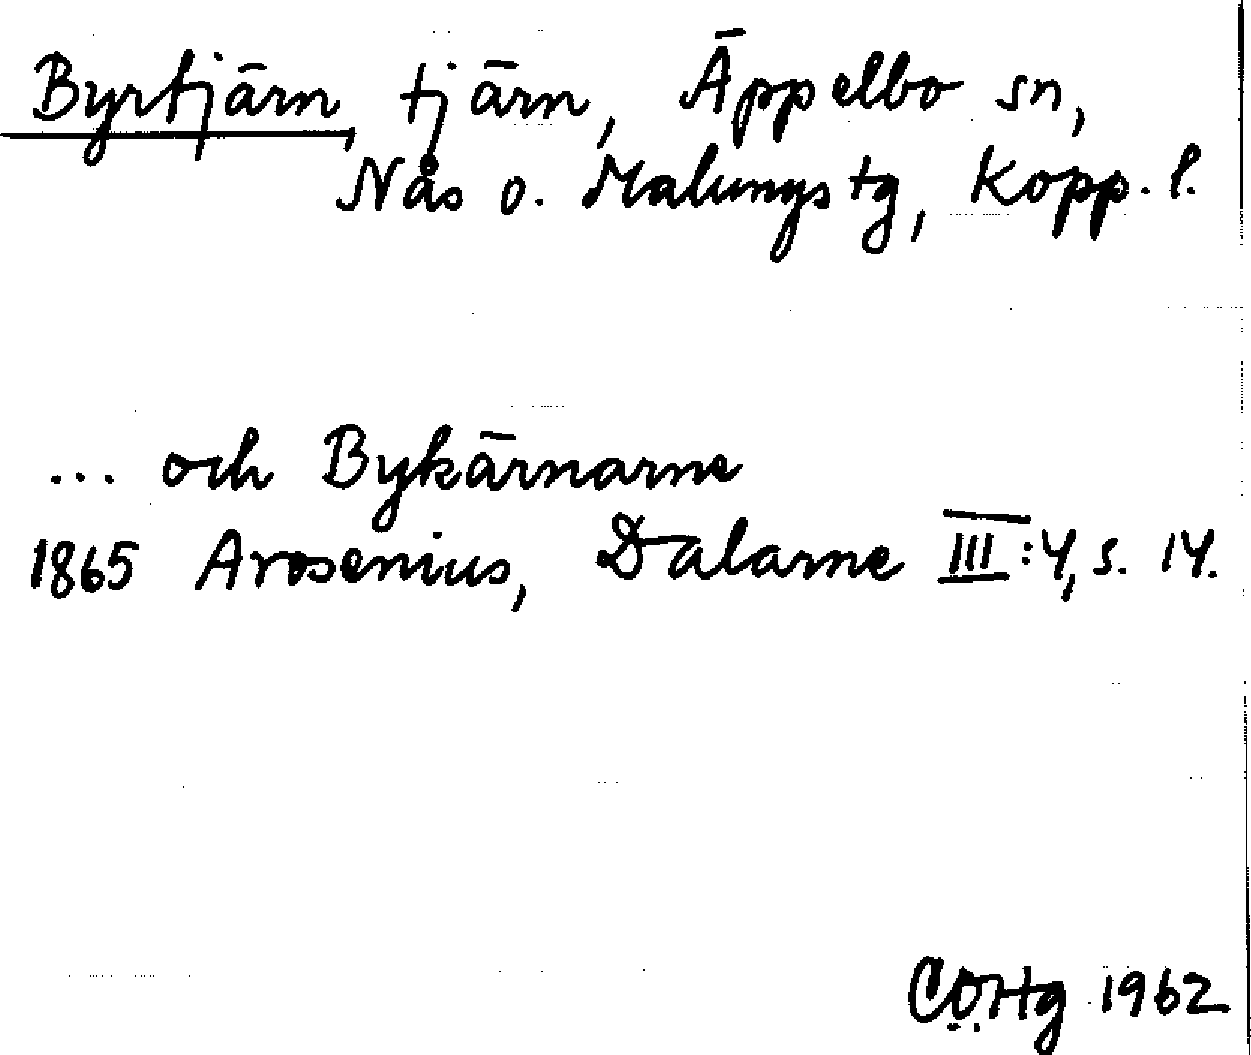 Byrtjärn, tjärn, Äppelbo sn,
Nås o. Malungs tg, Kopp. l.
... och Bykärnarne
1865 Arosenius, Dalarne III:4, s. 14.
1962